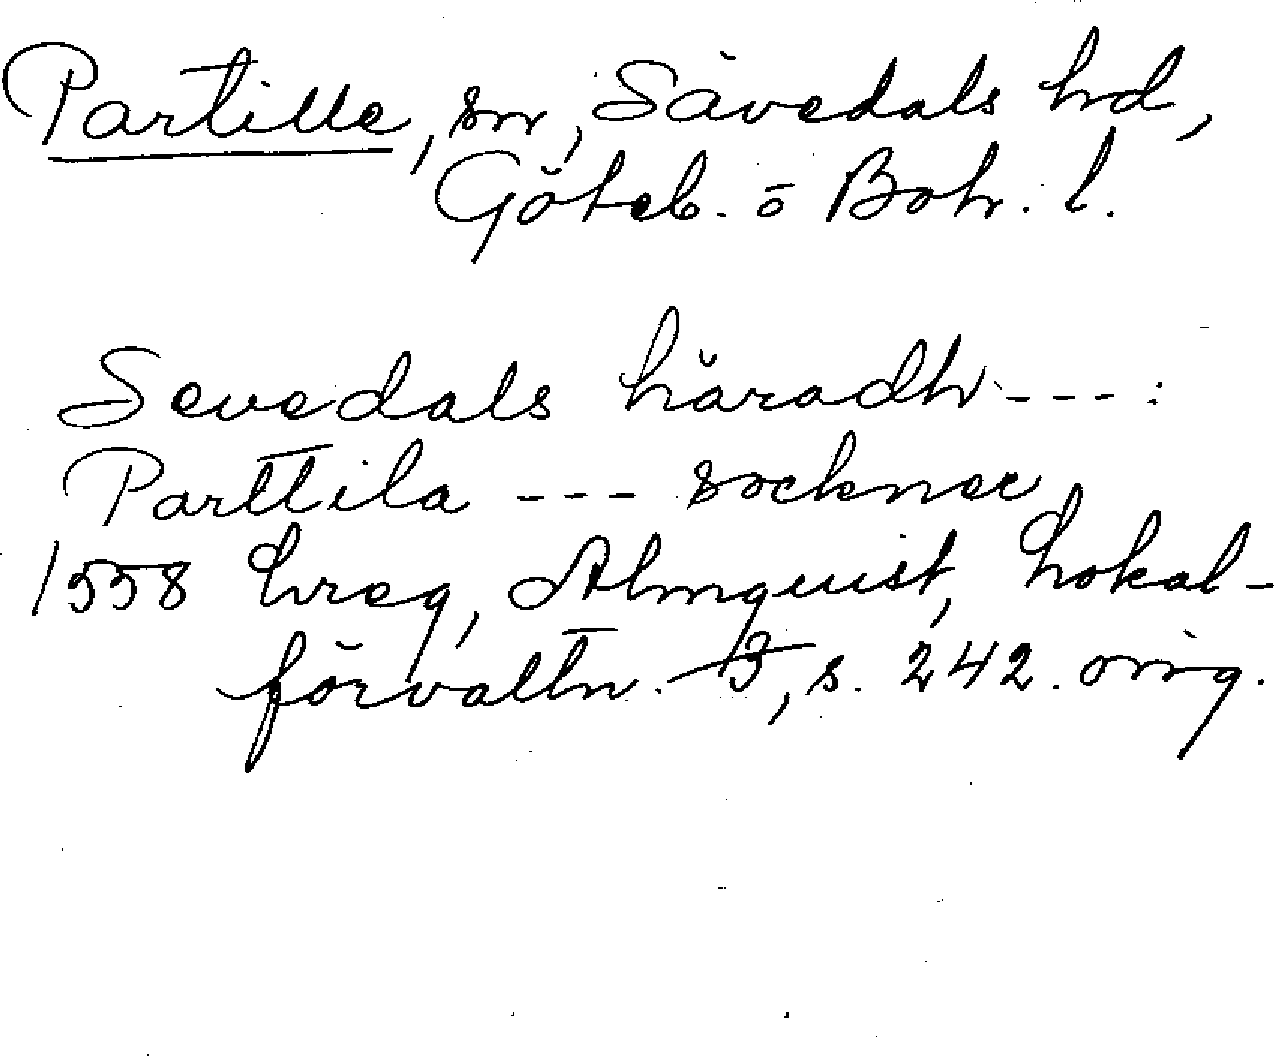 Partille, sn, Sävedals hd,
Göteb. o Boh. l.
Sevedals häradh ---:
Parttila --- sockner
1558 hreg, Almquist, Lokal-
förvaltn. 3, s. 242. orig.